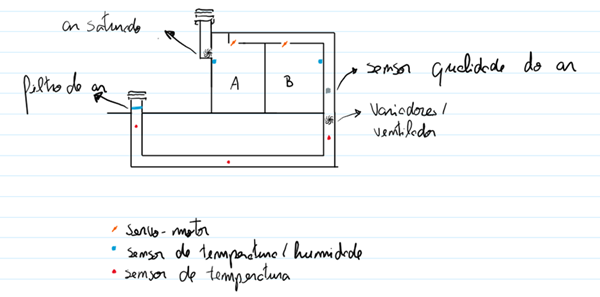 ar saturado
filtro de ar
A
B
sensor qualidade do ar
variadores/
ventilador
servo-motor
sensor de temperatura/humidade
sensor de temperatura